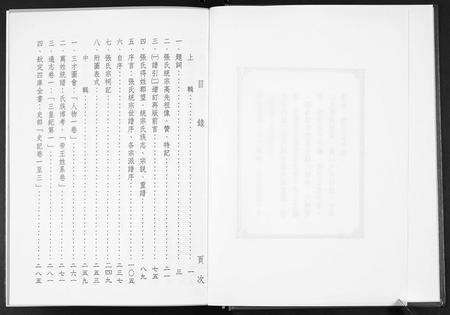 目錄　頁次
上輯　一
一．題詞　三
二．張氏統宗高先祖像．贊．特記　二一
三．㈠譜引㈡增訂再版前言　七五
四．張氏得姓郡望．統宗氏族志．宗說．重譜　八九
五．序言：張氏統宗世譜序．各宗派譜序　一〇五
六．自序　二三七
七．張氏宗祠記　二四九
八．附圖表式　二五三
中輯　二五九
一．三才圖會：「人物一卷」　二六一
二．萬姓統譜：氏族博考：「帝王姓系卷」　二七一
三．通志卷一：「三皇紀第一」　二八一
四．欽定四庫全書：史部「史記卷一至三」　二八五